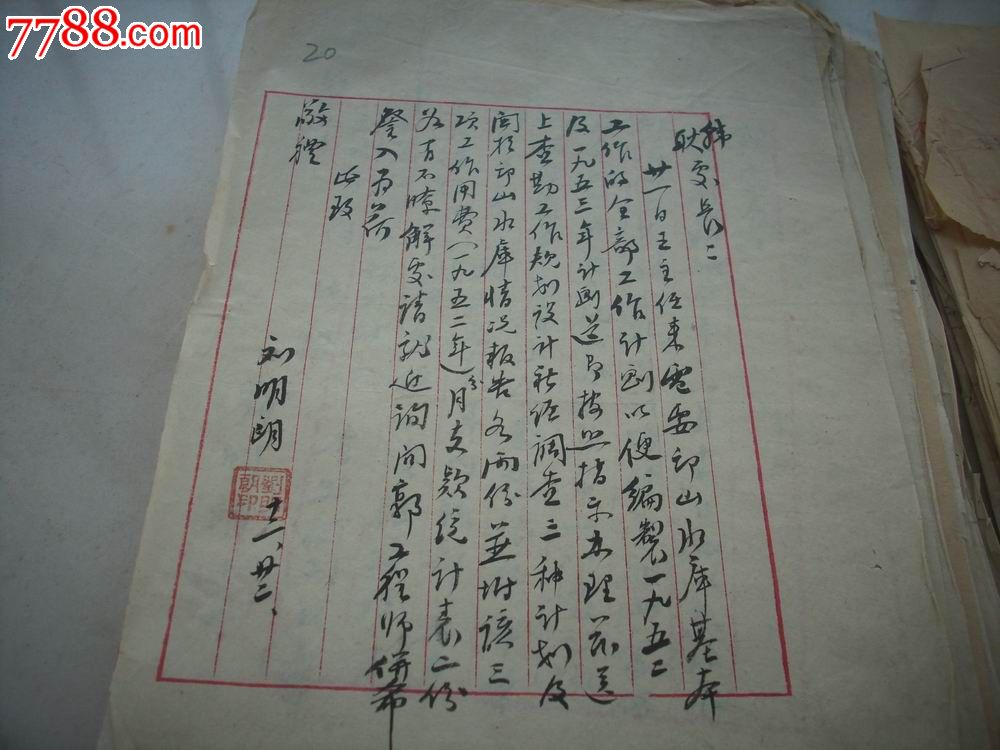 7788.com
20
韩
耿处长：
廿一日王主任来电要印山水库基本
工作的全部工作计劃以便编製一九五二
及一九五三年计劃遵即按照指示办理兹送
上查勘工作规划设计社经调查三种计划及
関於印山水库情况报告各两份並附该三
项工作用费(一九五二年)分月支款统计表二份
若有不瞭解处请就近詢问郭工程师併希
詧入为荷
此致
敬礼
刘明朗
劉明朝印
十一、廿二、